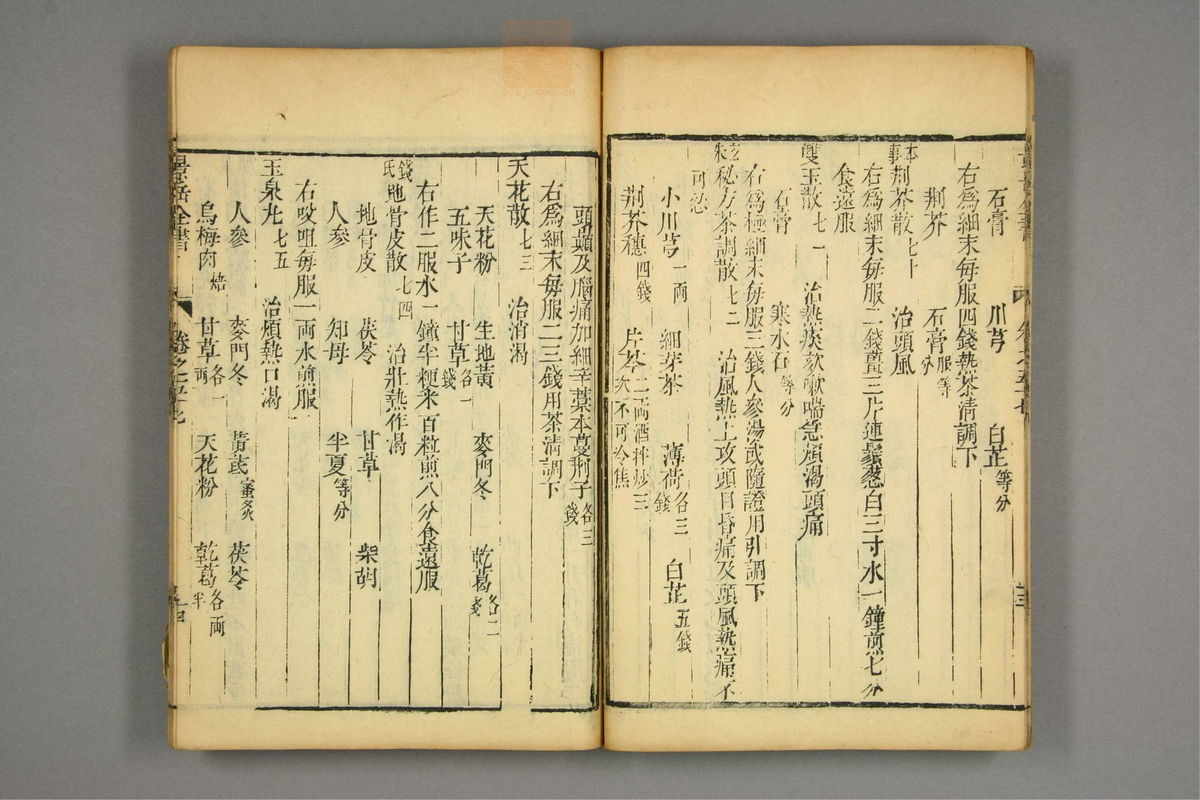 石膏　川芎　白芷等分
右爲細末每服四錢熱茶清調下
本事荆芥散七十　治頭風
荆芥　石膏等分
右爲細末每服二錢薑三片連鬚葱白三寸水一鐘煎七分
食遠服
雙玉散七一　治熱痰欬嗽喘急煩渴頭痛
石膏　寒水石等分
右爲極細末每服三錢人參湯或隨證用引調下
秘方茶調散七二　治風熱上攻頭目昏痛及頭風熱痛不
可忍
小川芎一兩　細芽茶　薄荷各三錢　白芷五錢
荆芥穗四錢　片芩二兩酒拌炒三次不可令焦
頭巔及腦痛加細辛藁本蔓荆子各三錢
右爲細末每服二三錢用茶清調下
天花散七三　治消渴
天花粉　生地黃　麥門冬　乾葛各二錢
五味子　甘草各一錢
右作二服水一鐘半粳米百粒煎八分食遠服
錢氏地骨皮散七四　治壯熱作渴
地骨皮　茯苓　甘草　柴胡
人參　知母　半夏等分
右㕮咀每服一兩水煎服
玉泉丸七五　治煩熱口渴
人參　麥門冬　黃芪蜜炙　茯苓
烏梅肉焙　甘草各一兩　天花粉　乾葛各兩半
景岳全書　卷之五十七　十四